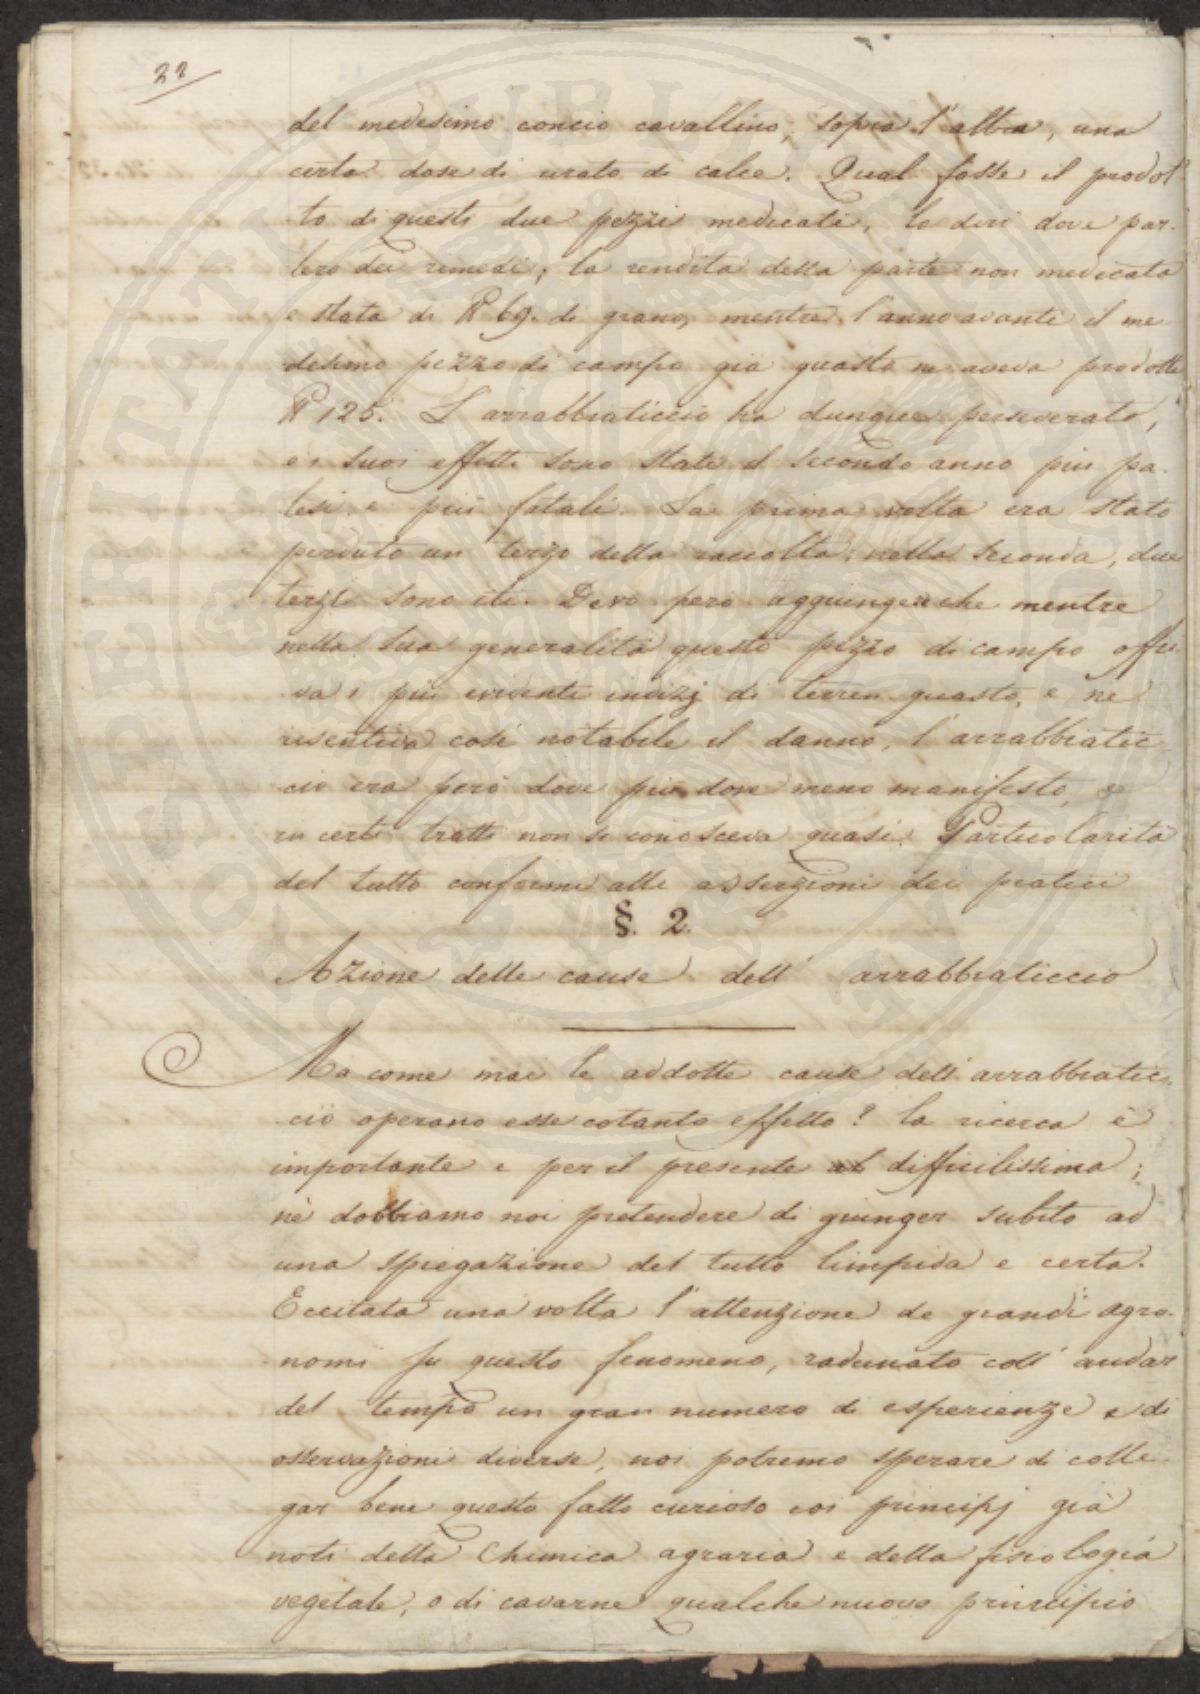 22
del medesimo concio cavallino, sopra l'altra, una
certa dose di urato di calce. Qual fosse il prodot
to di questi due pezzi medicati, lo dirò dove par-
lerò dei rimedi; la rendita della parte non medicata
è stata di 69. di grano, mentre l'anno avanti il me
desimo pezzo di campo già guasto ne aveva prodotte
125. L'arrabbiaticcio ha dunque perseverato,
e i suoi effetti sono stati il secondo anno più pa-
lesi e più fatali. La prima volta era stato
perduto un terzo della raccolta: nella seconda, due
terzi sono iti. Devo però aggiungere che mentre
nella sua generalità questo pezzo di campo offri-
va i più evidenti indizj di terren guasto, e ne
risentiva così notabile il danno, l'arrabbiatic
cio era però dove più dove meno manifesto, e
in certi tratti non si conosceva quasi. Particolarità
del tutto conformi alle asserzioni dei pratici
§. 2.
Azione delle cause dell' arrabbiaticcio
Ma come mai le addotte cause dell'arrabbiatic-
cio operano esse cotanto effetto? la ricerca è
importante e per il presente difficilissima;
nè dobbiamo noi pretendere di giunger subito ad
una spiegazione del tutto limpida e certa.
Eccitata una volta l'attenzione de grandi agro-
nomi su questo fenomeno, radunato coll' andar
del tempo un gran numero di esperienze e di
osservazioni diverse, noi potremo sperare di colle
gar bene questo fatto curioso coi principj già
noti della Chimica agraria e della fisiologia
vegetale, o di cavarne qualche nuovo principio
COSPERITATI PVBLICAE AVGENDAE